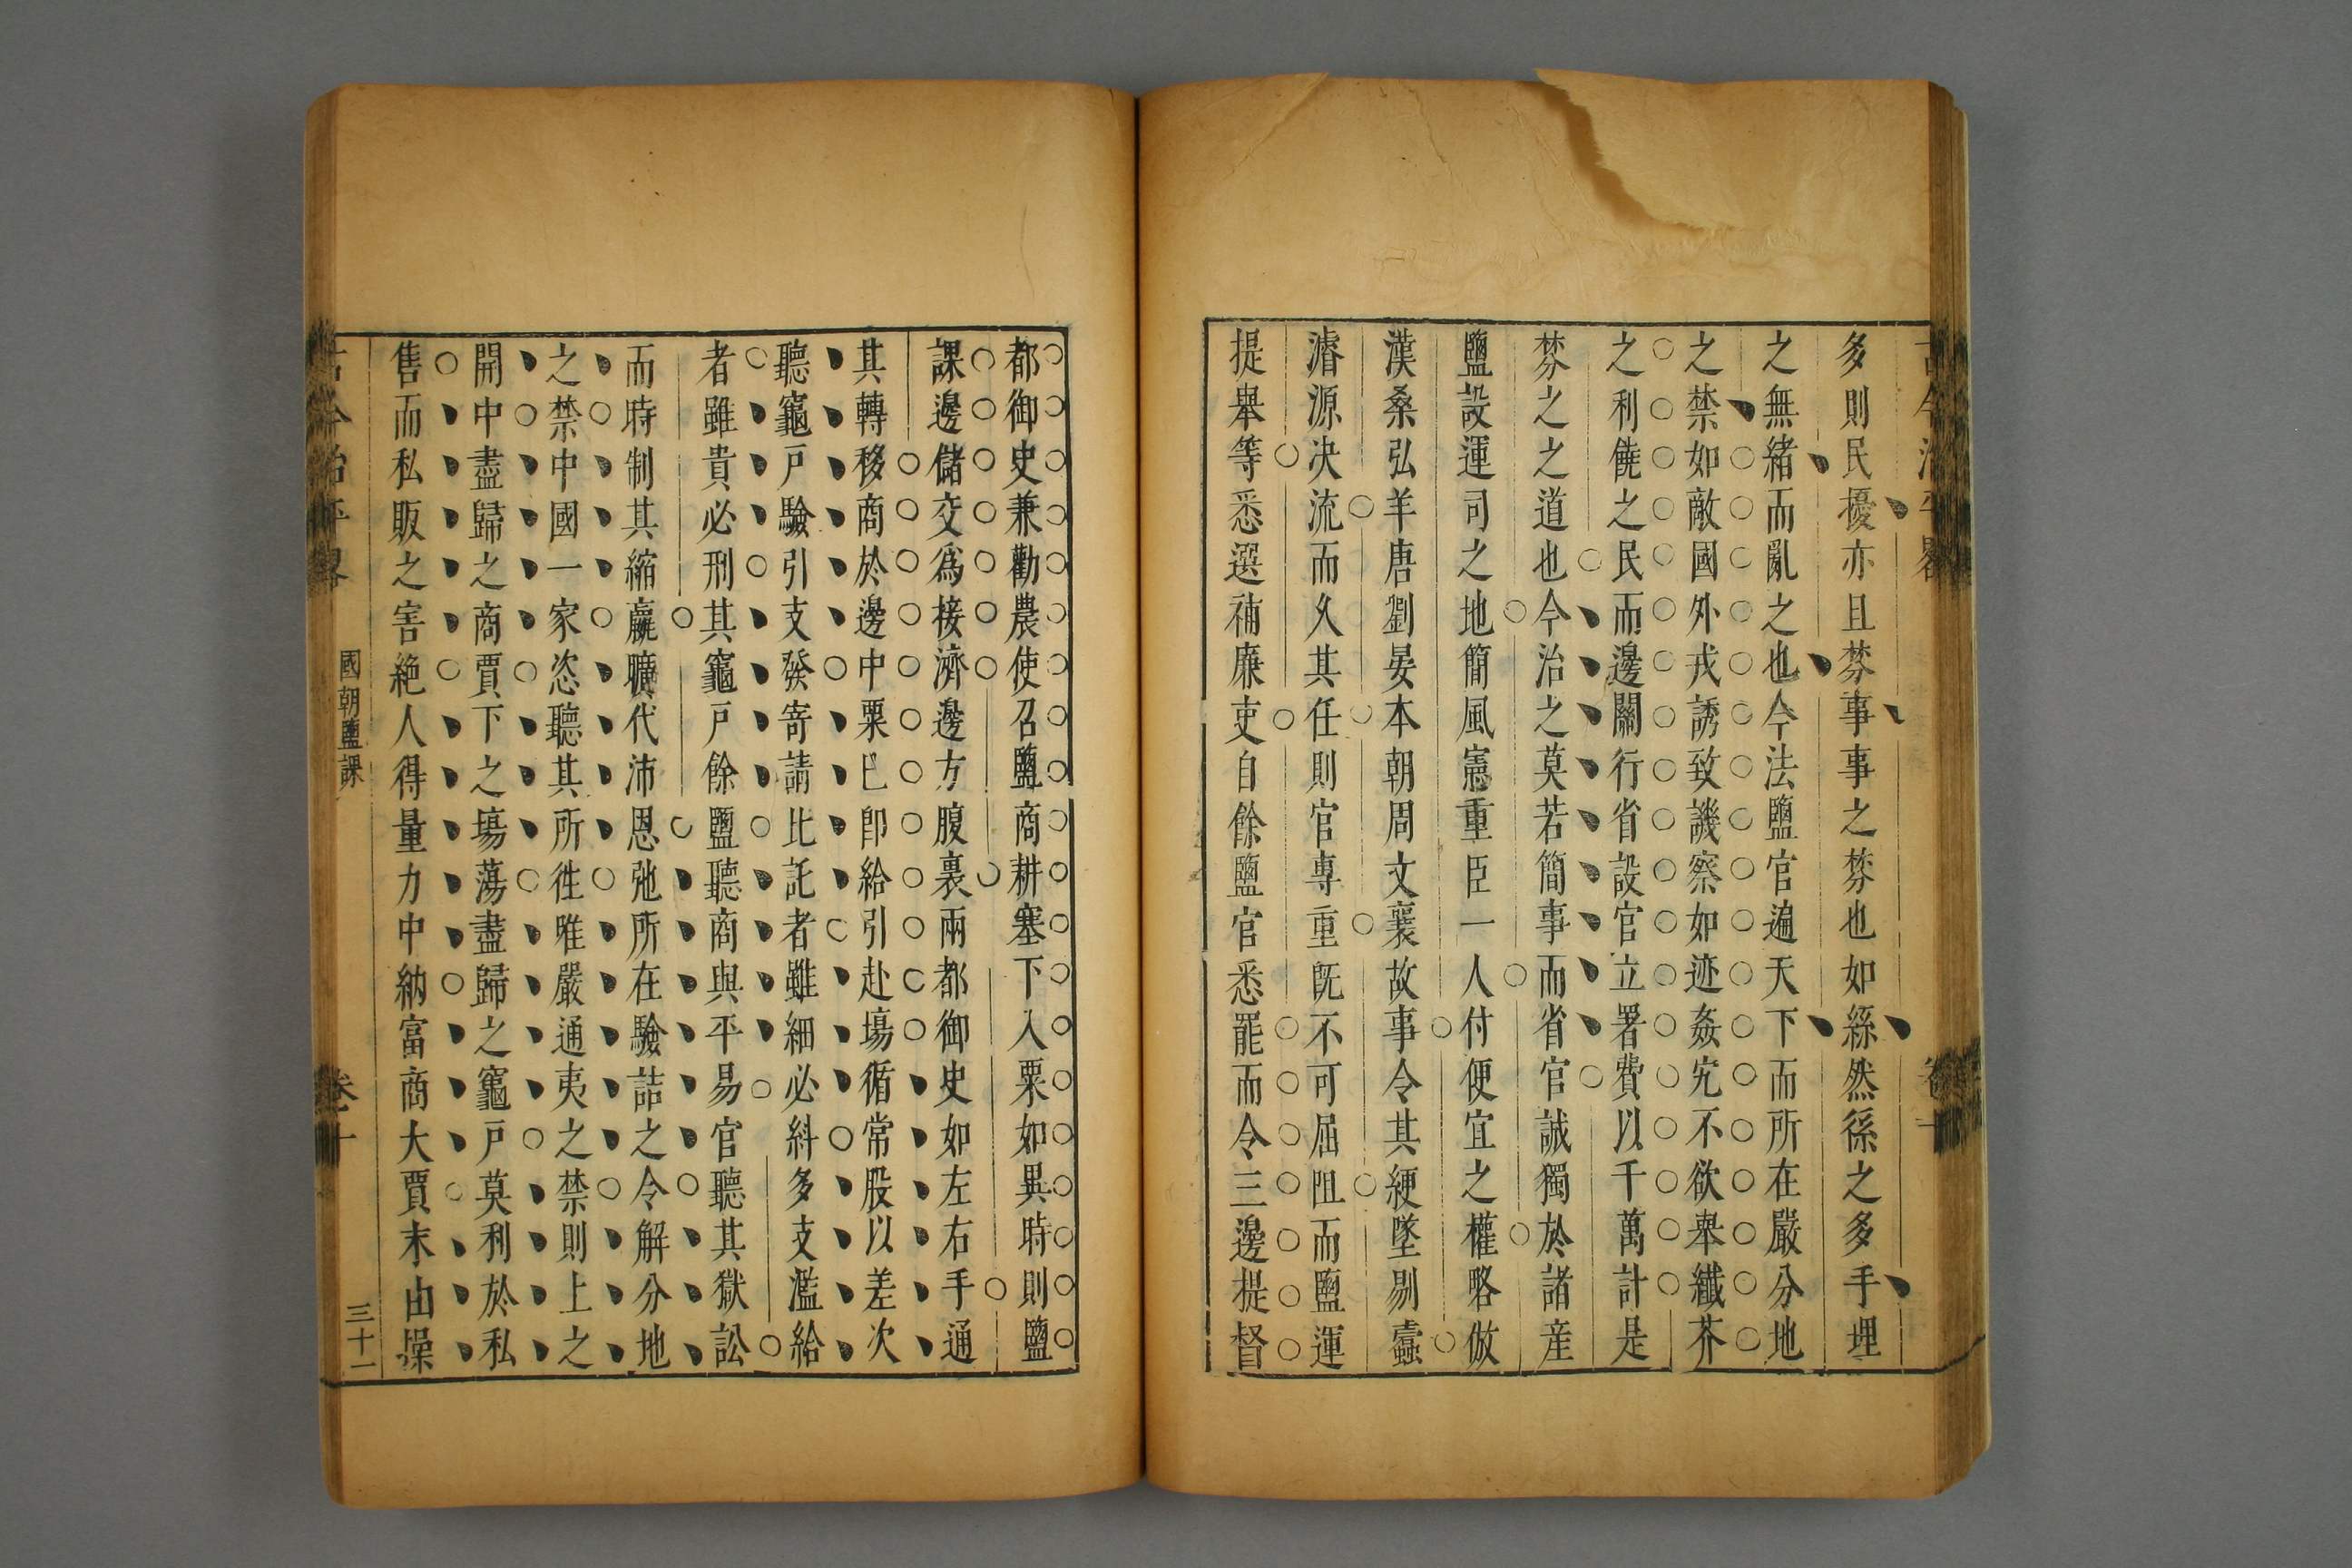 多則民擾亦且棼事事之棼也如絲然係之多手埋
之無緒而亂之也今法鹽官遍天下而所在嚴分地
之禁如敵國外戎誘致譏察如迹姦宄不欲舉纖芥
之利饒之民而邊關行省設官立署費以千萬計是
棼之之道也今治之莫若簡事而省官誠獨於諸産
鹽設運司之地簡風憲重臣一人付便宜之權略倣
漢桑弘羊唐劉晏本朝周文襄故事令其綆墜剔蠹
濬源决流而久其任則官專重既不可屈阻而鹽運
提舉等悉選補廉吏自餘鹽官悉罷而令三邊提督
都御史兼勸農使召鹽商耕塞下入粟如異時則鹽
課邊儲交爲接濟邊方腹裏兩都御史如左右手通
其轉移商於邊中粟已卽給引赴塲循常股以差次
聽竈戸驗引支發寄請比託者雖細必糾多支濫給
者雖貴必刑其竈戸餘鹽聽商與平易官聽其獄訟
而時制其縮贏曠代沛恩弛所在驗詰之令解分地
之禁中國一家恣聽其所徃唯嚴通夷之禁則上之
開中盡歸之商賈下之塲蕩盡歸之竈戸莫利於私
售而私販之害絶人得量力中納富商大賈末由操
國朝鹽課
卷十
三十一